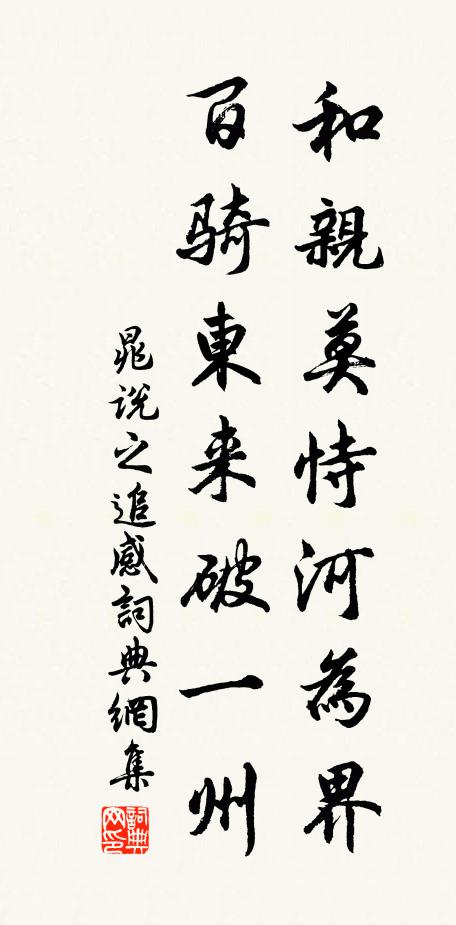 和親莫恃河為界
百騎東来破一州
晁说之追感詞典網集
詞典网印